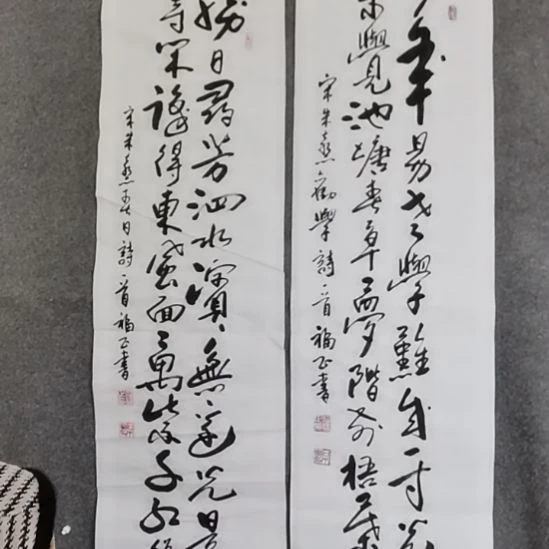 年易老學難成一寸光
未覺池塘春草夢階前梧葉
宋朱熹勸學詩一首福正書
勝日尋芳泗水濱無邊光景
等閑識得東風面萬紫千紅總
宋朱熹春日詩一首福正書